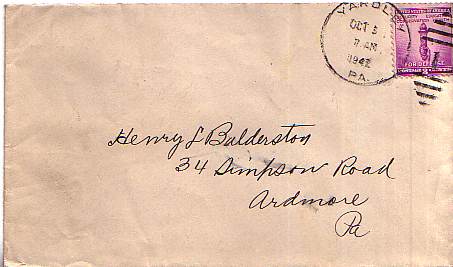 YARDLEY
OCT 5
7 AM
1942
PA.
UNITED STATES OF AMERICA
FOR DEFENSE
Henry L Balderston
34 Simpson Road
Ardmore
Pa